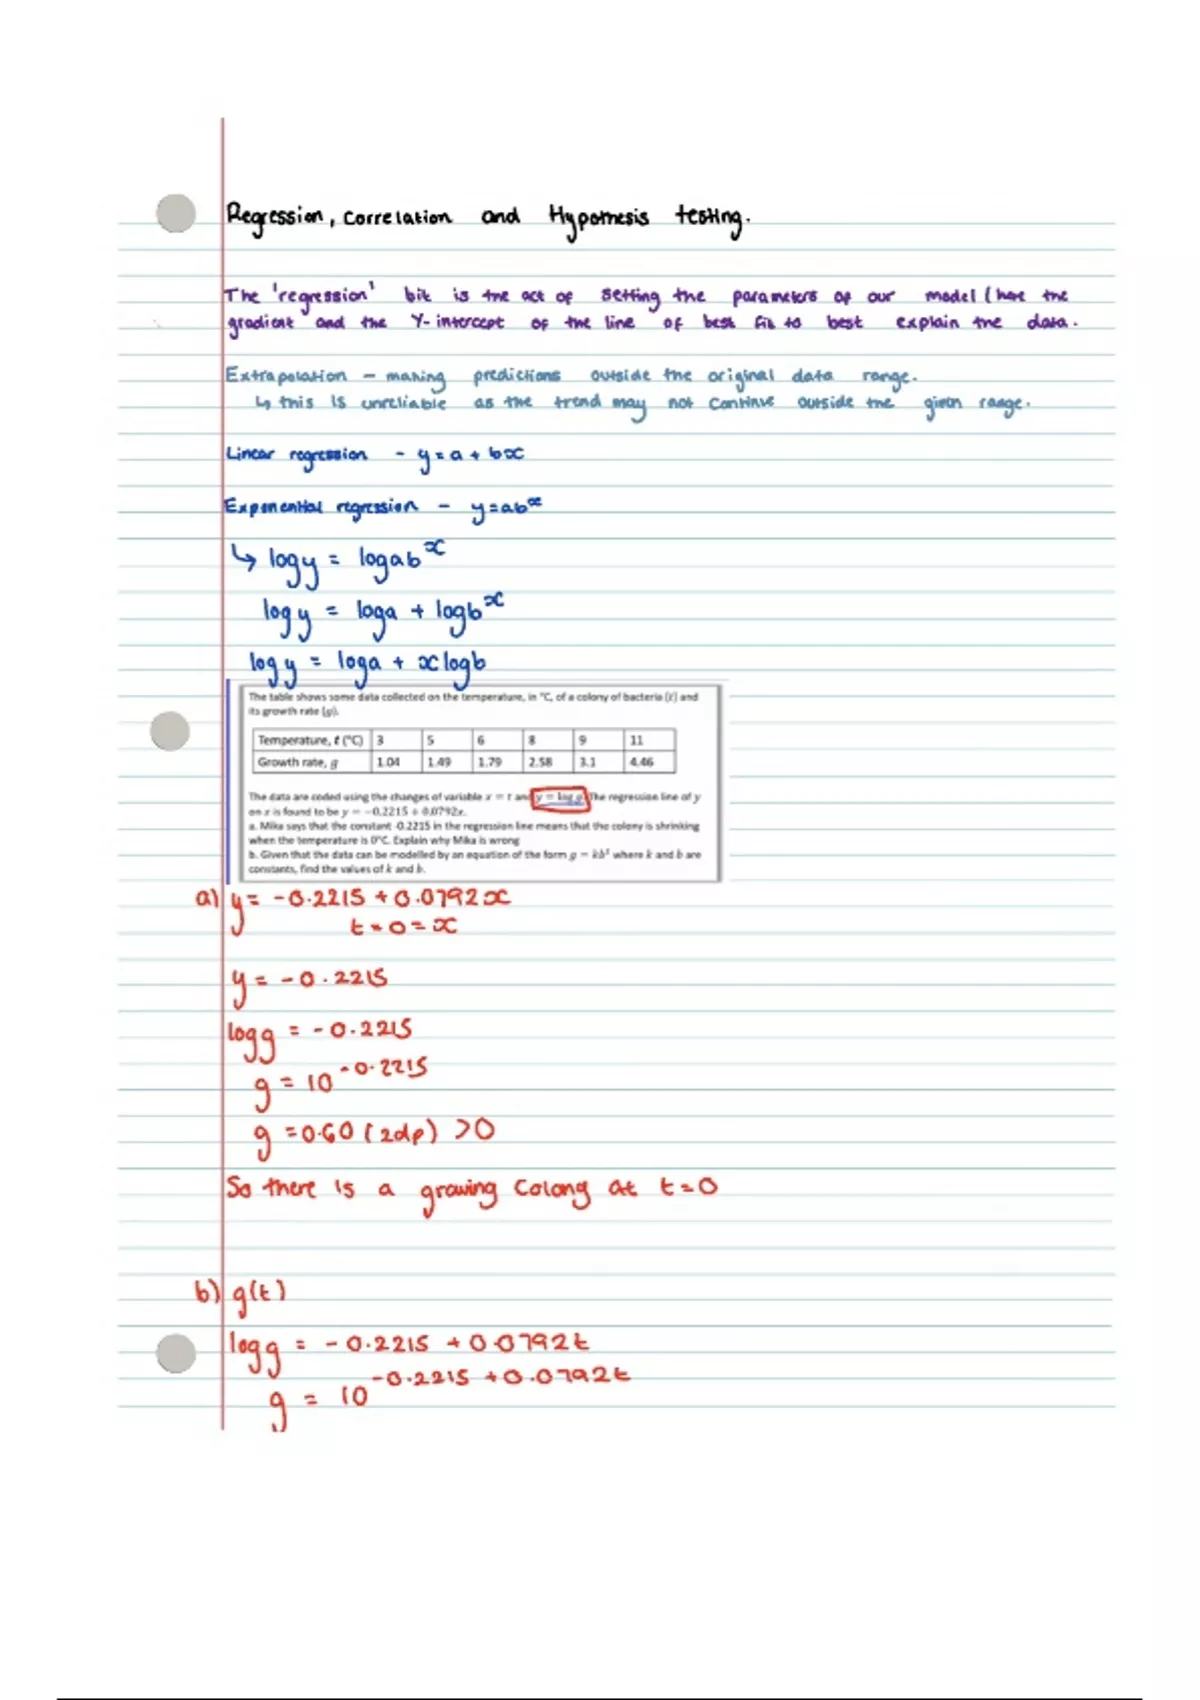 Regression, Correlation and Hypothesis testing.
The 'regression' bit is the act of setting the parameters of our model (here the
gradient and the Y-intercept of the line of best fit to best explain the data.
Extrapolation - making predictions outside the original data range.
↳ this is unreliable as the trend may not continue outside the given range.
Linear regression - y = a + bx
Exponential regression - y = abˣ
↳ logy = logabˣ
logy = loga + logbˣ
logy = loga + xlogb
The table shows some data collected on the temperature, in °C, of a colony of bacteria (t) and
its growth rate (g).
Temperature, t (°C) 3 5 6 8 9 11
Growth rate, g 1.04 1.49 1.79 2.58 3.1 4.46
The data are coded using the changes of variable x = t and y = log g. The regression line of y
on x is found to be y = −0.2215 + 0.0792x.
a. Mika says that the constant -0.2215 in the regression line means that the colony is shrinking
when the temperature is 0°C. Explain why Mika is wrong
b. Given that the data can be modelled by an equation of the form g = kbᵗ where k and b are
constants, find the values of k and b.
a) y = -0.2215 + 0.0792x
t = 0 = x
y = -0.2215
logg = -0.2215
g = 10^-0.2215
g = 0.60 (2dp) >0
So there is a growing colony at t=0
b) g(t)
logg = -0.2215 + 0.0792t
g = 10^-0.2215 + 0.0792t